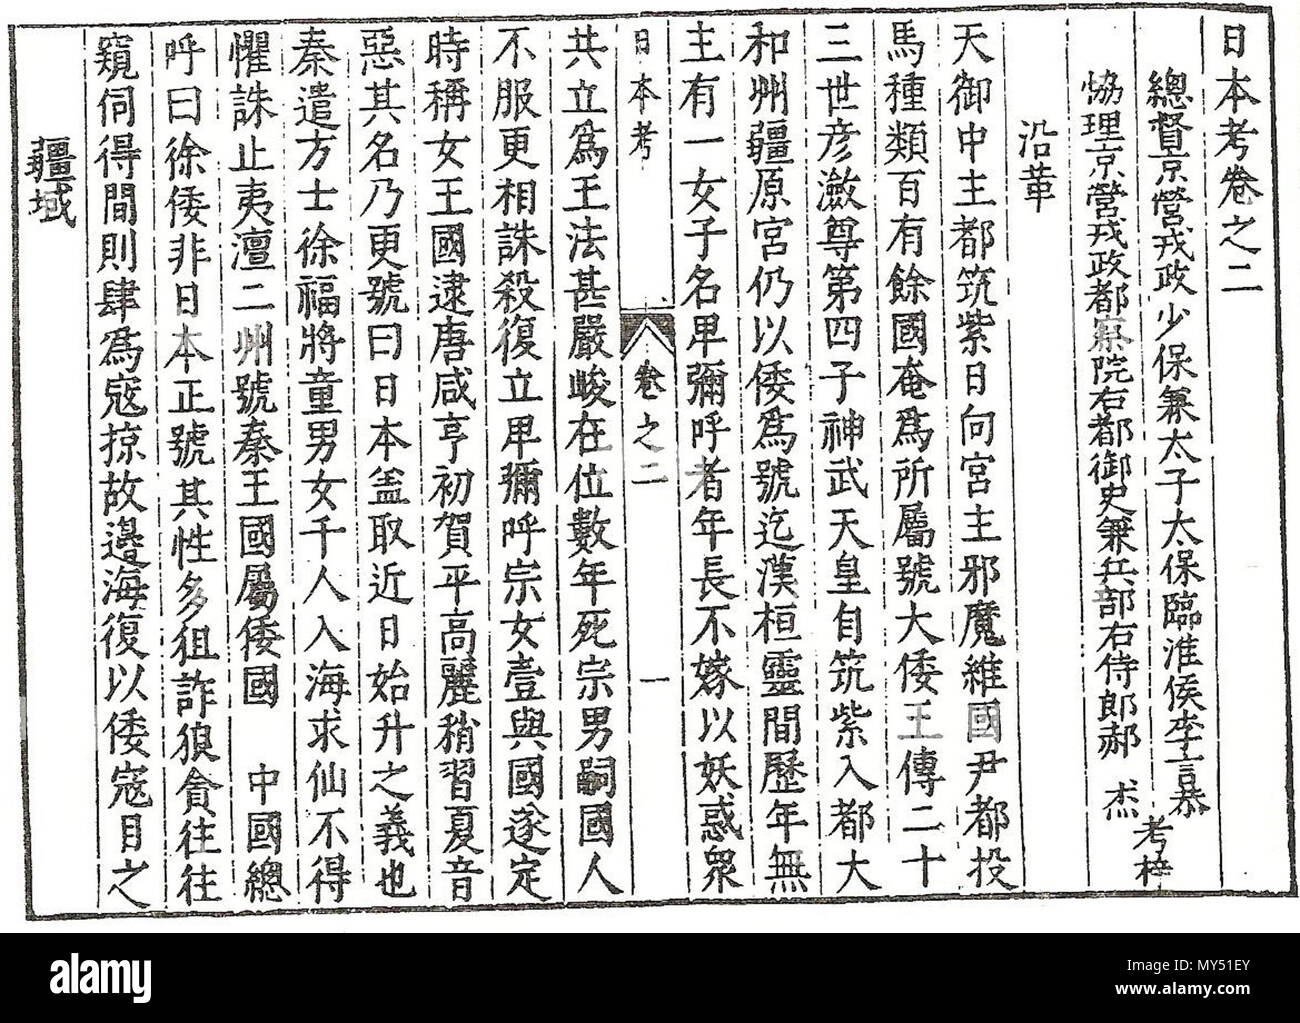 日本考卷之二
總督京營戎政少保兼太子太保臨淮侯李言恭
協理京營戎政都察院右都御史兼兵部右侍郎郝 杰
考梓
沿革
天御中主都筑紫日向宮主邪魔維國尹都投
馬種類百有餘國奄爲所屬號大倭王傳二十
三世彦瀲尊第四子神武天皇自筑紫入都大
和州疆原宮仍以倭爲號迄漢桓靈間歷年無
主有一女子名卑彌呼者年長不嫁以妖惑眾
日本考 卷之二 一
共立爲王法甚嚴峻在位數年死宗男嗣國人
不服更相誅殺復立卑彌呼宗女壹與國遂定
時稱女王國逮唐咸亨初賀平高麗稍習夏音
惡其名乃更號曰日本盖取近日始升之義也
秦遣方士徐福將童男女千人入海求仙不得
懼誅止夷澶二州號秦王國屬倭國 中國總
呼曰徐倭非日本正號其性多狙詐狼貪往往
窺伺得間則肆爲寇掠故邊海復以倭寇目之
疆域
alamy
Image ID: MY51EY
www.alamy.com